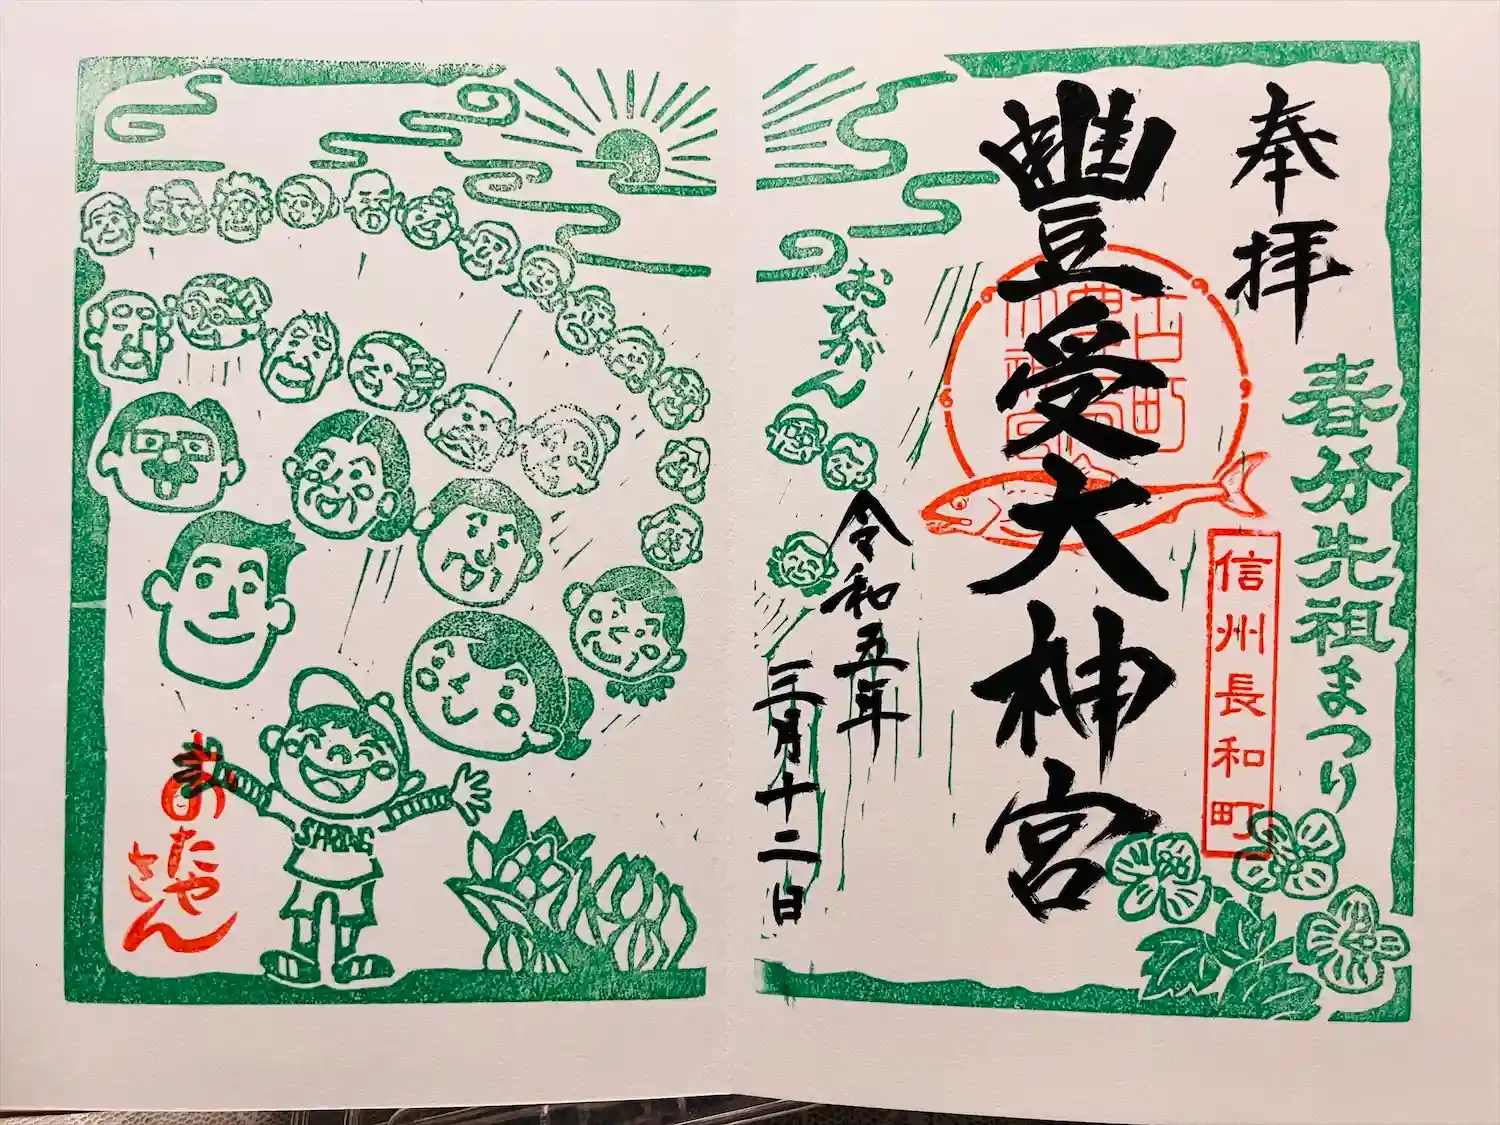 奉拝
春分先祖まつり
信州長和町
豐受大神宮
おひがん
令和五年
三月十二日
SPRING
おたやさん